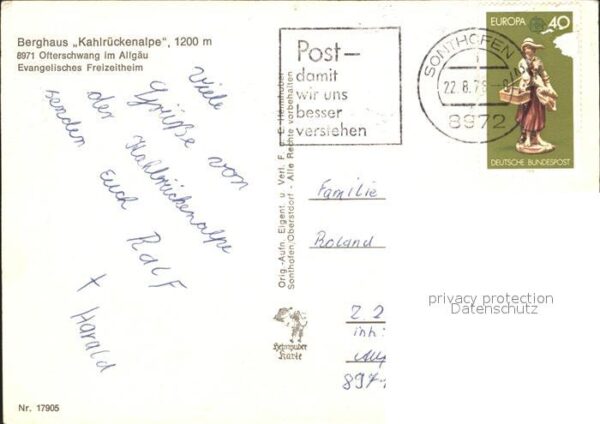 Berghaus „Kahlrückenalpe", 1200 m
8971 Ofterschwang im Allgäu
Evangelisches Freizeitheim
Viele
Grüße von
der Kahlrückenalpe
senden Euch Ralf
+ Harald
Orig.-Aufn. Eigent. u. Verl. F. u. E. Heimhuber
Sonthofen/Oberstdorf - Alle Rechte vorbehalten
Post—
damit
wir uns
besser
verstehen
SONTHOFEN
22.8.76
8972
EUROPA 40
DEUTSCHE BUNDESPOST
Familie
Roland
Z. Z.
inh:
897
Heimhuber
Karte
privacy protection
Datenschutz
Nr. 17905